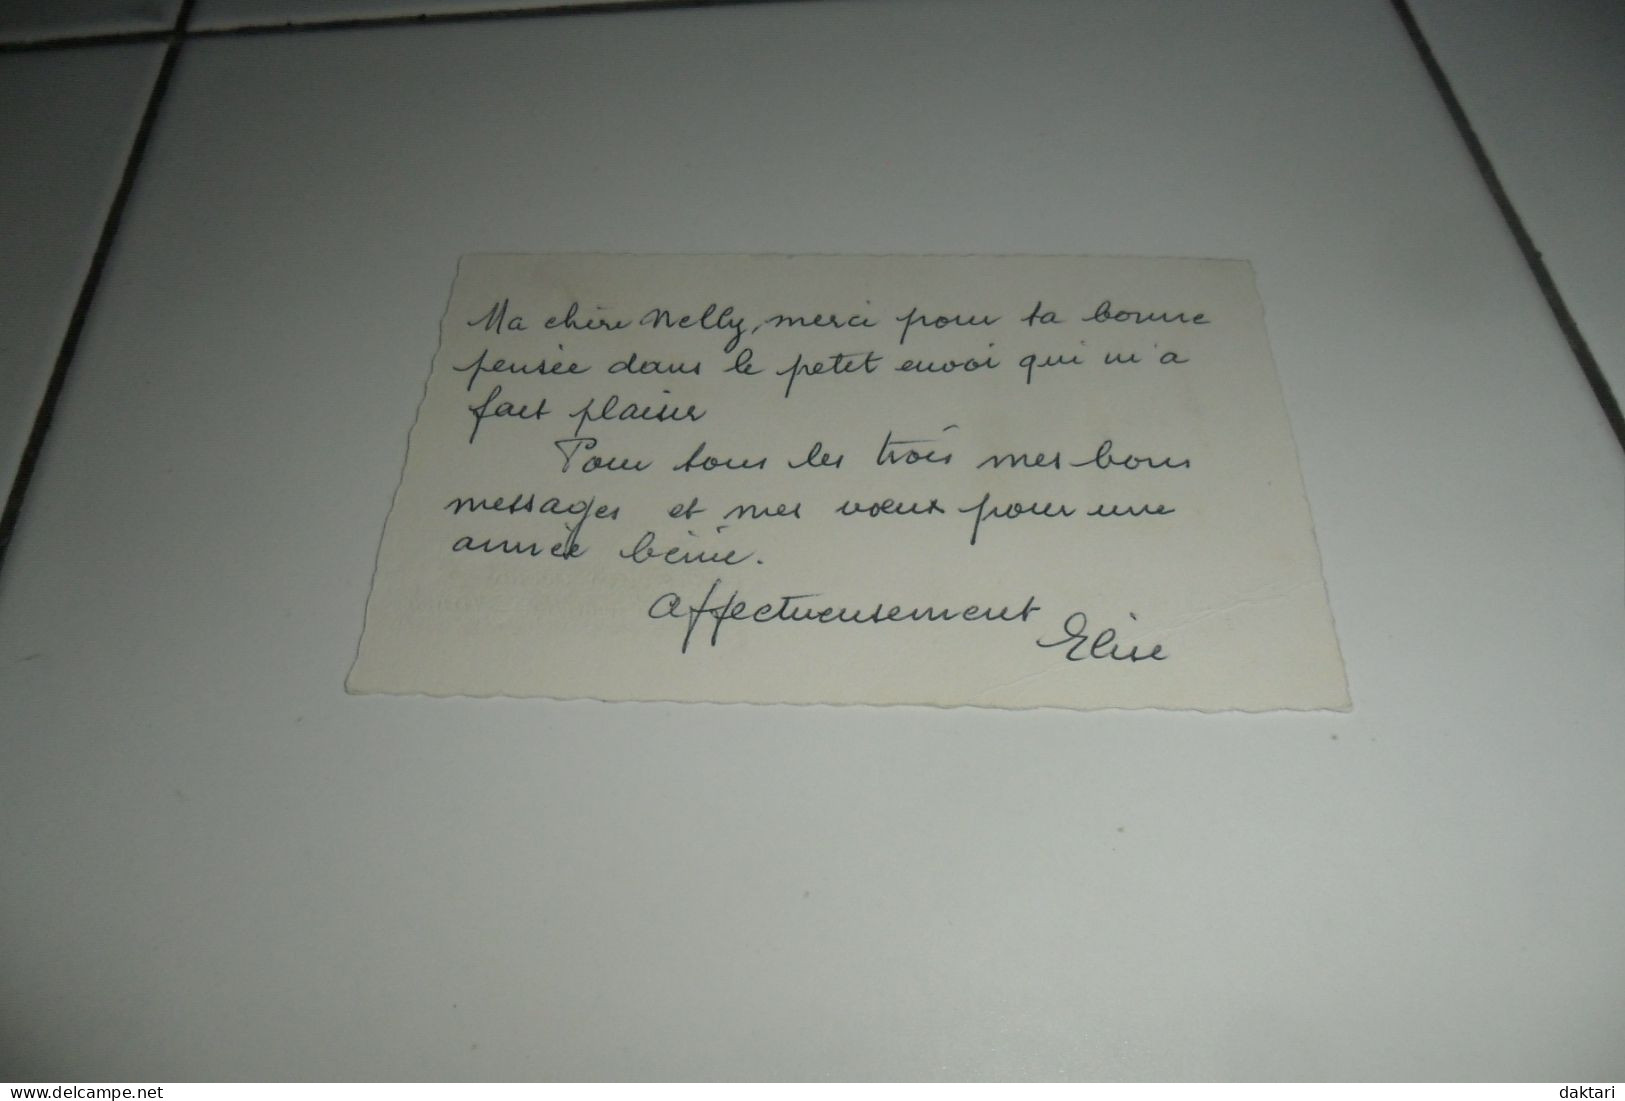 Ma chère Nelly, merci pour ta bonne
pensée dans le petit envoi qui m'a
fait plaisir
Pour tous les trois mes bons
messages et mes vœux pour une
année bénie.
Affectueusement
Elise
www.delcampe.net
daktari